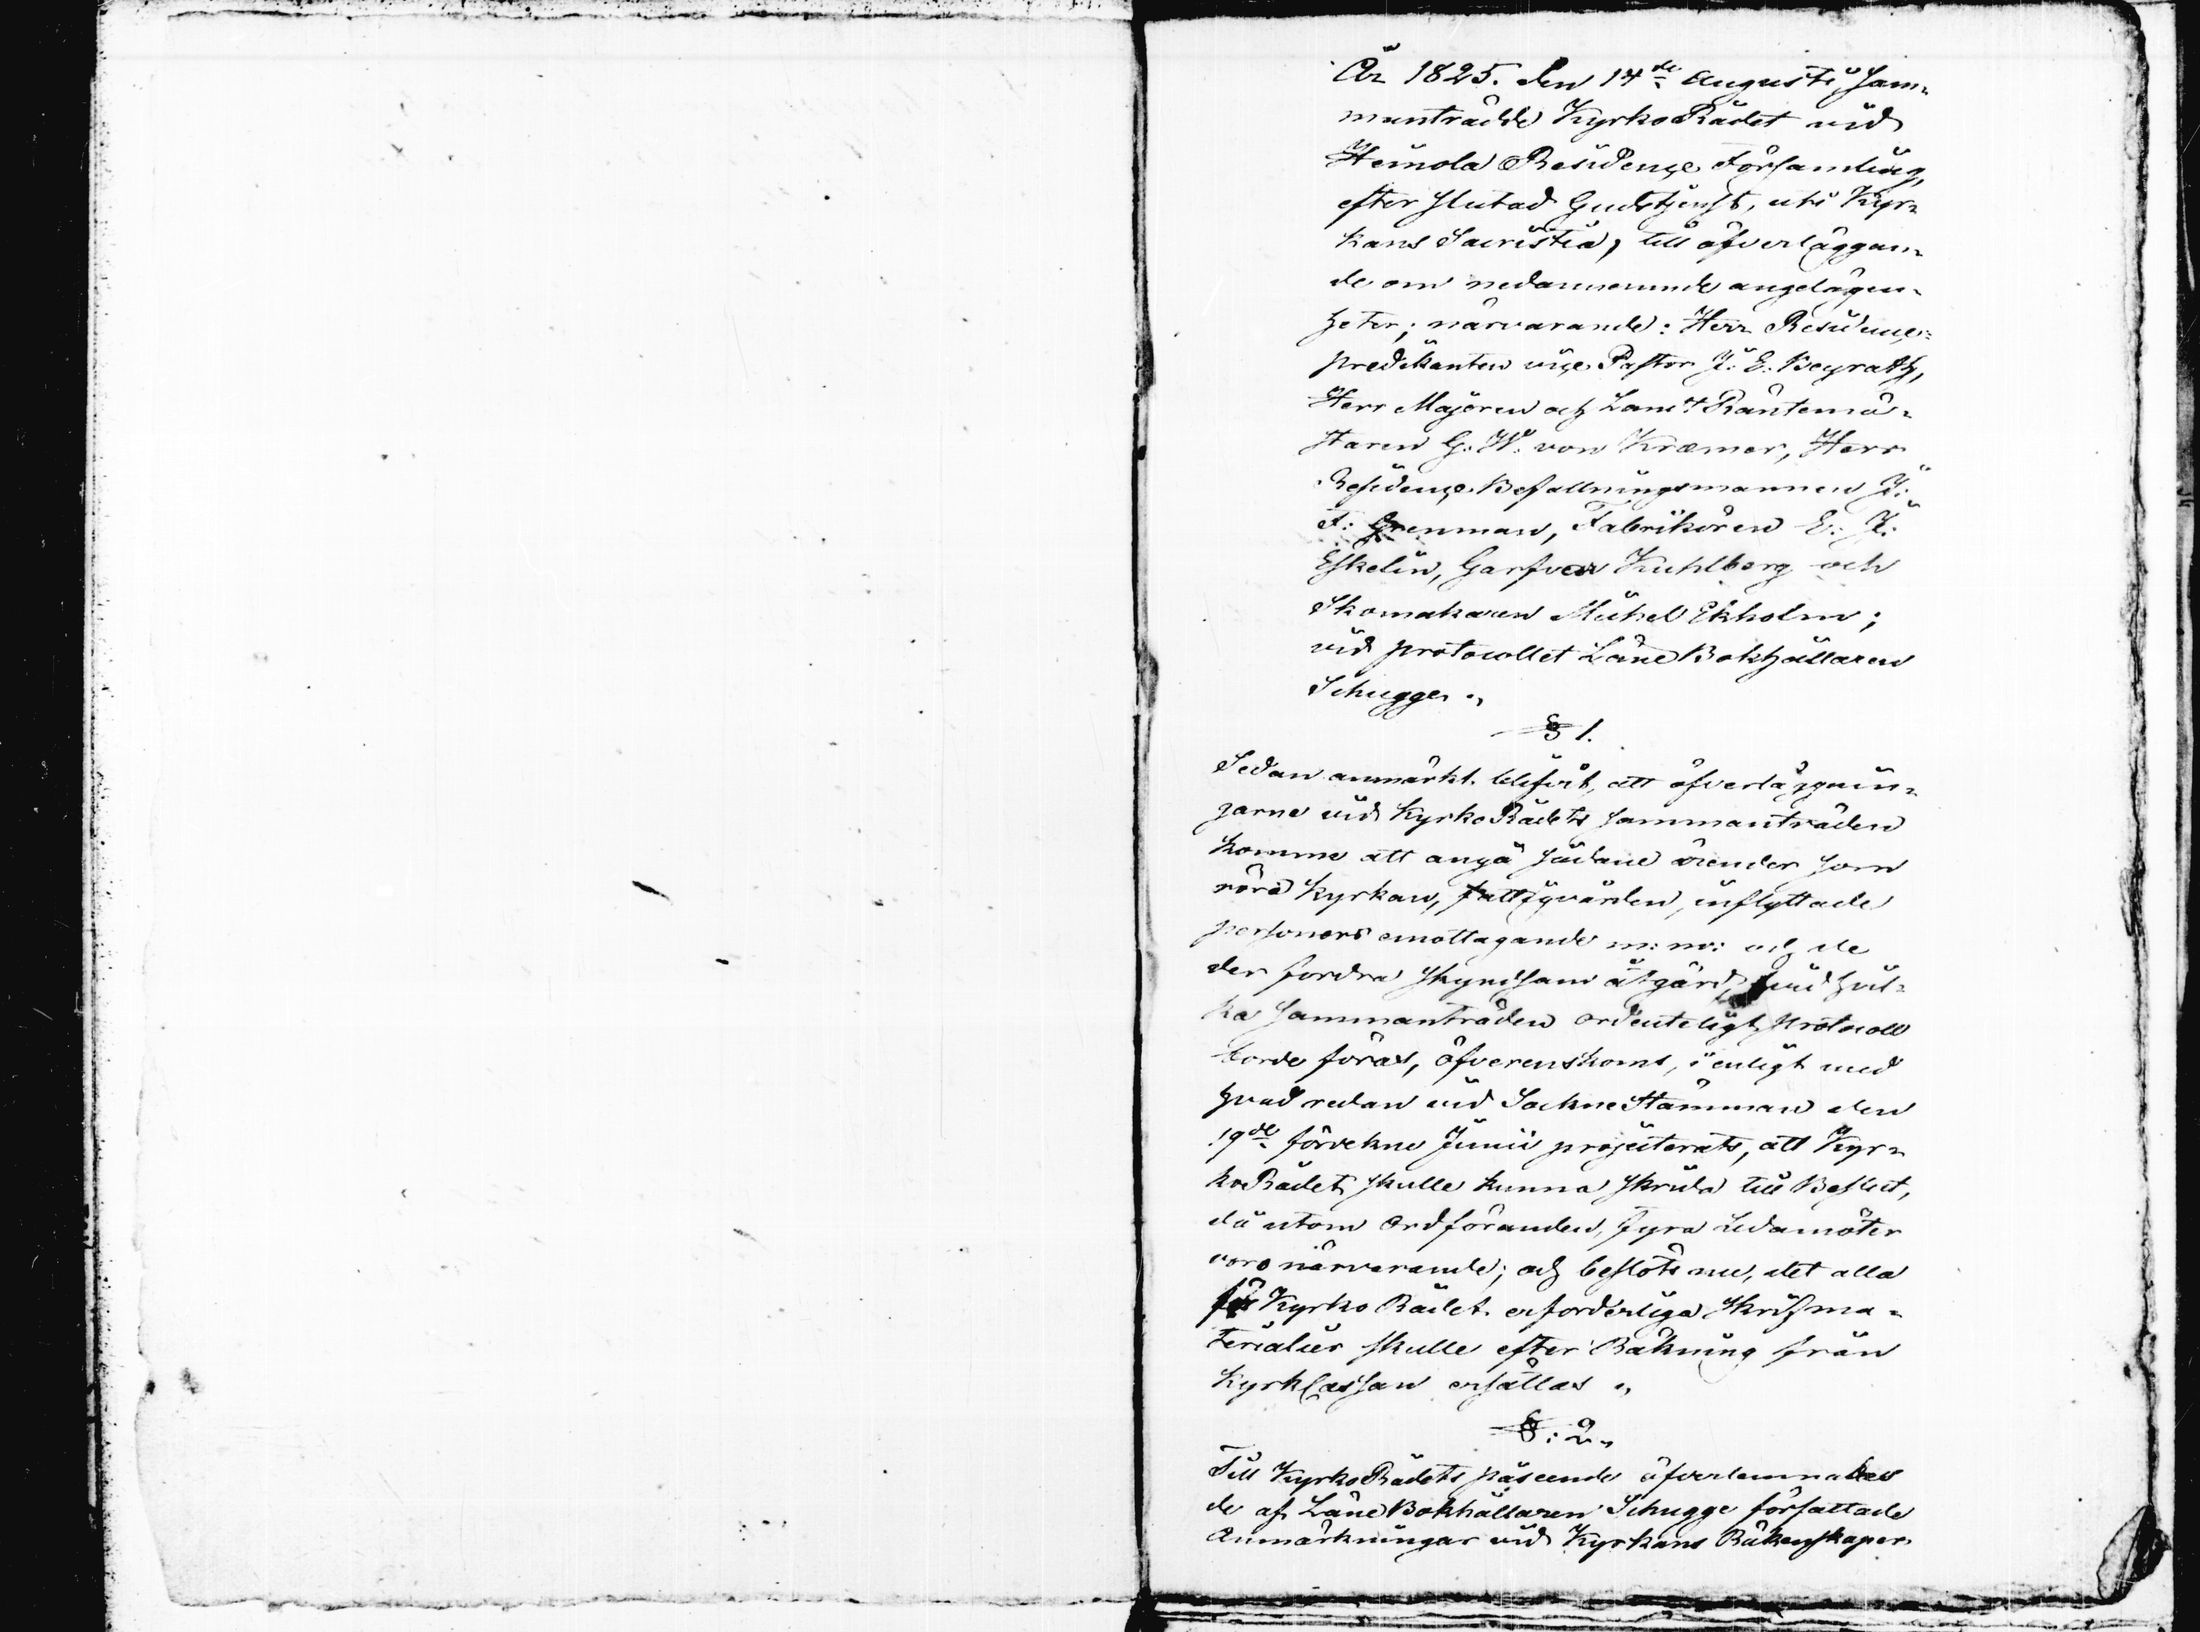 År 1825. den 14de Augusti, sam-
manträdde KyrkoRådet vid
Heinola Residence Församling,
efter slutad Gudstjenst, uti Kyr-
kans Sacristia, till öfverläggan-
de om nedannemnde angelägen-
heter; närvarande: Herr Residence-
predikanten vice Pastor J. E. Beyrath,
Herr Majoren och Landt Räntemä-
staren G. W. von Kræmer, Herr
Residence Befallningsmannen J.
F. Grenman, Fabrikören E. J.
Eskelin, Garfvar Kuhlberg och
Skomakaren Michel Ekholm;
vid protocollet Läne Bokhållaren
Schugge.,
§ 1.
Sedan anmärkt blifvit, att öfverläggnin-
garne vid KyrkoRådets sammanträden
komme att angå sådane ärender som
röra kyrkan, fattigvården, inflyttade
personers emottagande m: m: och de
der fordra skyndsam åtgärd, vid hvil-
ka sammanträden ordenteligt protocoll
borde föras, öfverenskoms, i enligt med
hvad redan vid SockneStämman den
19de förvekne Junii projecterats, att Kyr-
koRådet skulle kunna skrida till Beslut,
då utom Ordföranden, fyra Ledamöter
voro närvarande; och beslöts nu, det alla
för Kyrko Rådet erforderliga skrifma-
terialier skulle efter Räkning från
KyrkCassan ersättas.,
§: 2.,
Till KyrkoRådets påseende öfverlemnades
de af Läne Bokhållaren Schugge författade
Anmärkningar vid Kyrkans Räkenskaper